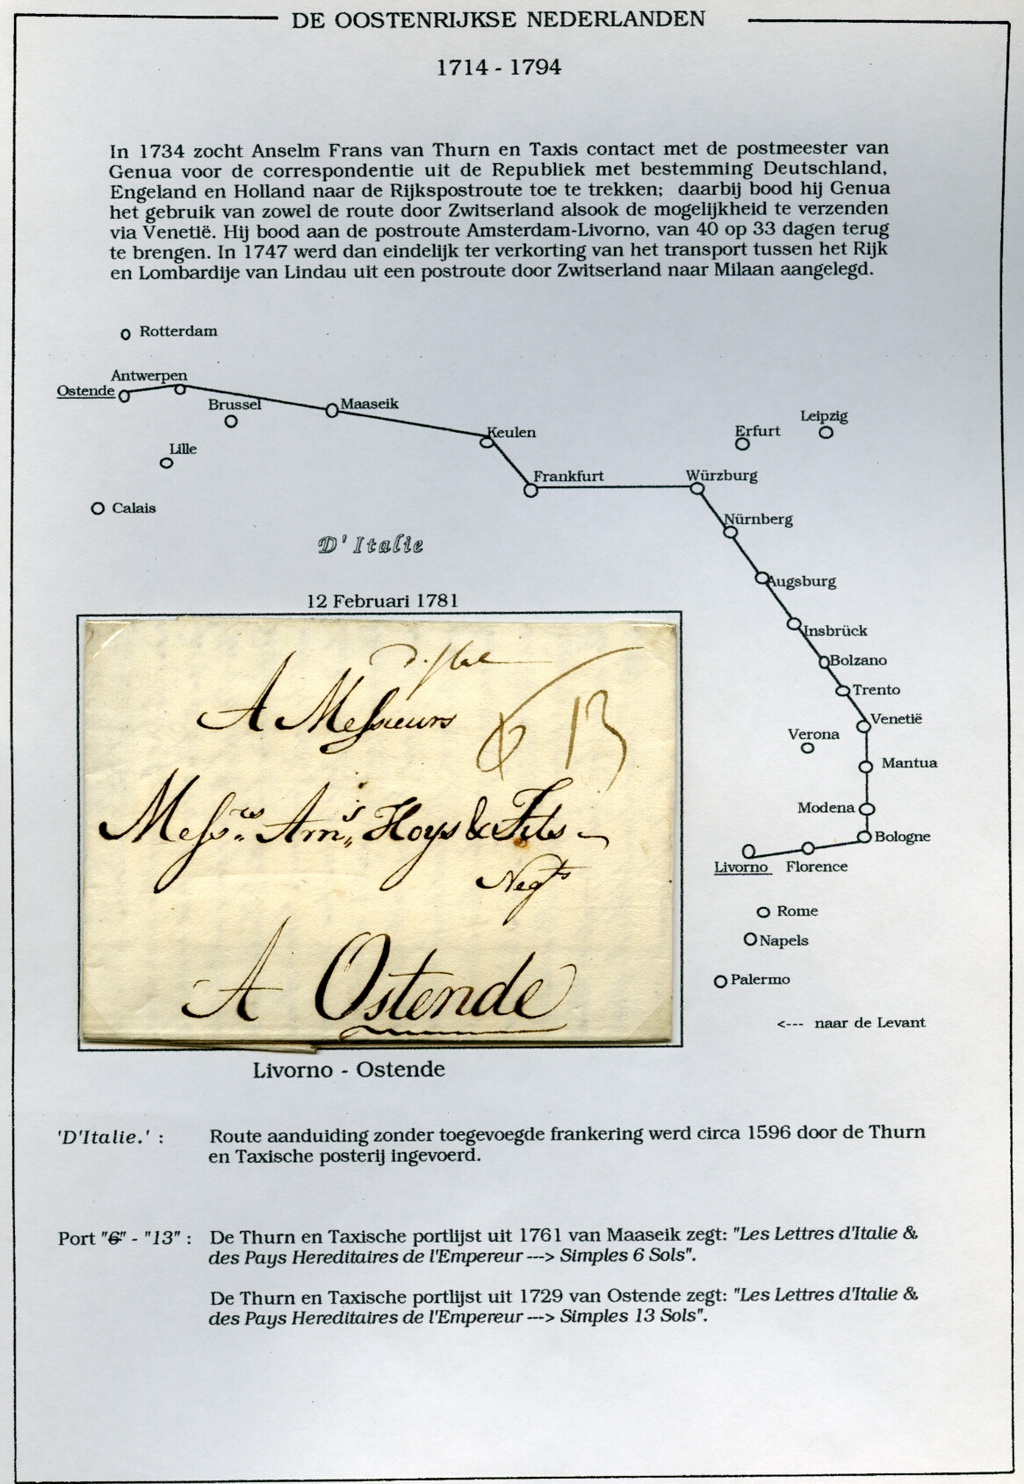 DE OOSTENRIJKSE NEDERLANDEN
1714 - 1794
In 1734 zocht Anselm Frans van Thurn en Taxis contact met de postmeester van
Genua voor de correspondentie uit de Republiek met bestemming Deutschland,
Engeland en Holland naar de Rijkspostroute toe te trekken; daarbij bood hij Genua
het gebruik van zowel de route door Zwitserland alsook de mogelijkheid te verzenden
via Venetië. Hij bood aan de postroute Amsterdam-Livorno, van 40 op 33 dagen terug
te brengen. In 1747 werd dan eindelijk ter verkorting van het transport tussen het Rijk
en Lombardije van Lindau uit een postroute door Zwitserland naar Milaan aangelegd.
Rotterdam
Antwerpen
Ostende
Brussel
Maaseik
Lille
Keulen
Erfurt
Leipzig
Frankfurt
Würzburg
Calais
Nürnberg
D'Italie
Augsburg
12 Februari 1781
Insbrück
Bolzano
Trento
Venetië
Verona
Mantua
Modena
Bologne
Livorno
Florence
Rome
Napels
Palermo
<--- naar de Levant
A Messieurs
6 13
Messrs Arns Hoys & Fils
Negts
A Ostende
Livorno - Ostende
'D'Italie.' : Route aanduiding zonder toegevoegde frankering werd circa 1596 door de Thurn
en Taxische posterij ingevoerd.
Port "6" - "13" : De Thurn en Taxische portlijst uit 1761 van Maaseik zegt: "Les Lettres d'Italie &
des Pays Hereditaires de l'Empereur ---> Simples 6 Sols".
De Thurn en Taxische portlijst uit 1729 van Ostende zegt: "Les Lettres d'Italie &
des Pays Hereditaires de l'Empereur ---> Simples 13 Sols".